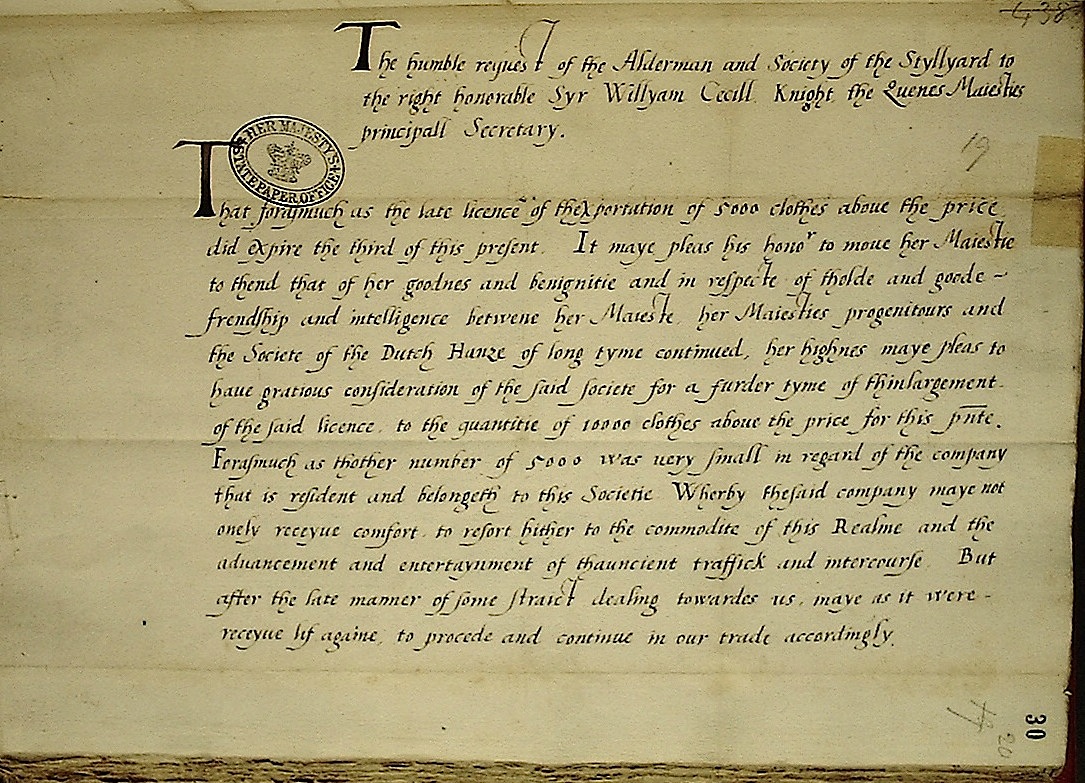 438
The humble request of the Alderman and Society of the Styllyard to
the right honorable Syr Willyam Cecill Knight the Quenes Maiesties
principall Secretary.
19
HER MAJESTY'S STATE PAPER OFFICE
That forasmuch as the late licence of thexportation of 5000 clothes above the price
did expire the third of this present. It maye pleas his honor to moue her Maiestie
to thend that of her goodnes and benignitie and in respecte of tholde and goode ~
frendship and intelligence betwene her Maieste, her Maiesties progenitours and
the Societe of the Dutch Hanze of long tyme continued, her highnes maye pleas to
haue gratious consideration of the said societe for a furder tyme of thinlargement
of the said licence, to the quantitie of 10000 clothes above the price for this pnte.
Forasmuch as thother number of 5000 was very small in regard of the company
that is resident and belongeth to this Societie Wherby thesaid company maye not
onely receyue comfort, to resort hither to the commodite of this Realme and the
aduancement and entertaynment of thauncient traffick and intercourse. But
after the late manner of some straict dealing towardes us, maye as it were -
receyue lif againe, to procede and continue in our trade accordingly.
30
20